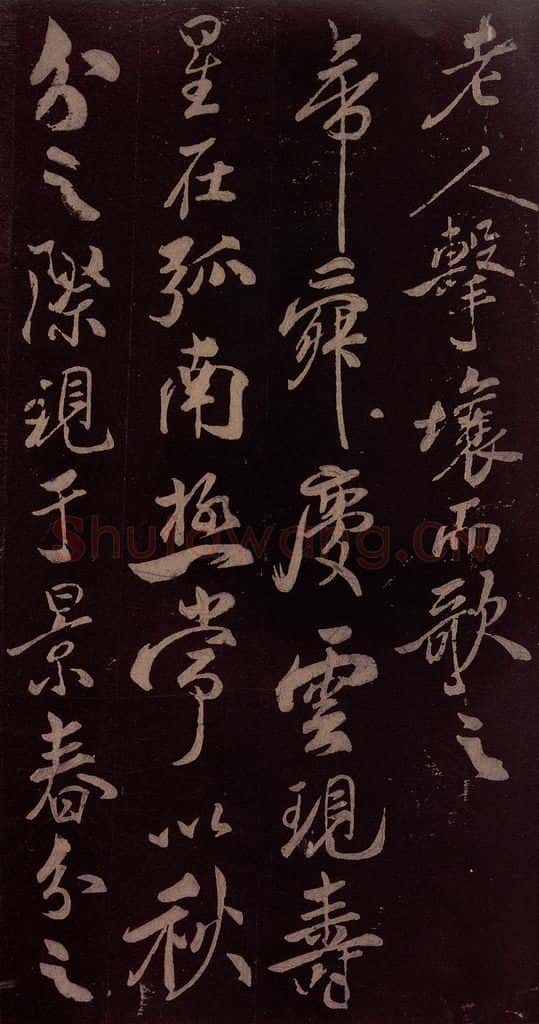 老人擊壤而歌之
帝舜慶雲現壽
星在弧南極常以秋
分之際現于景春分之
Shufawang.cn